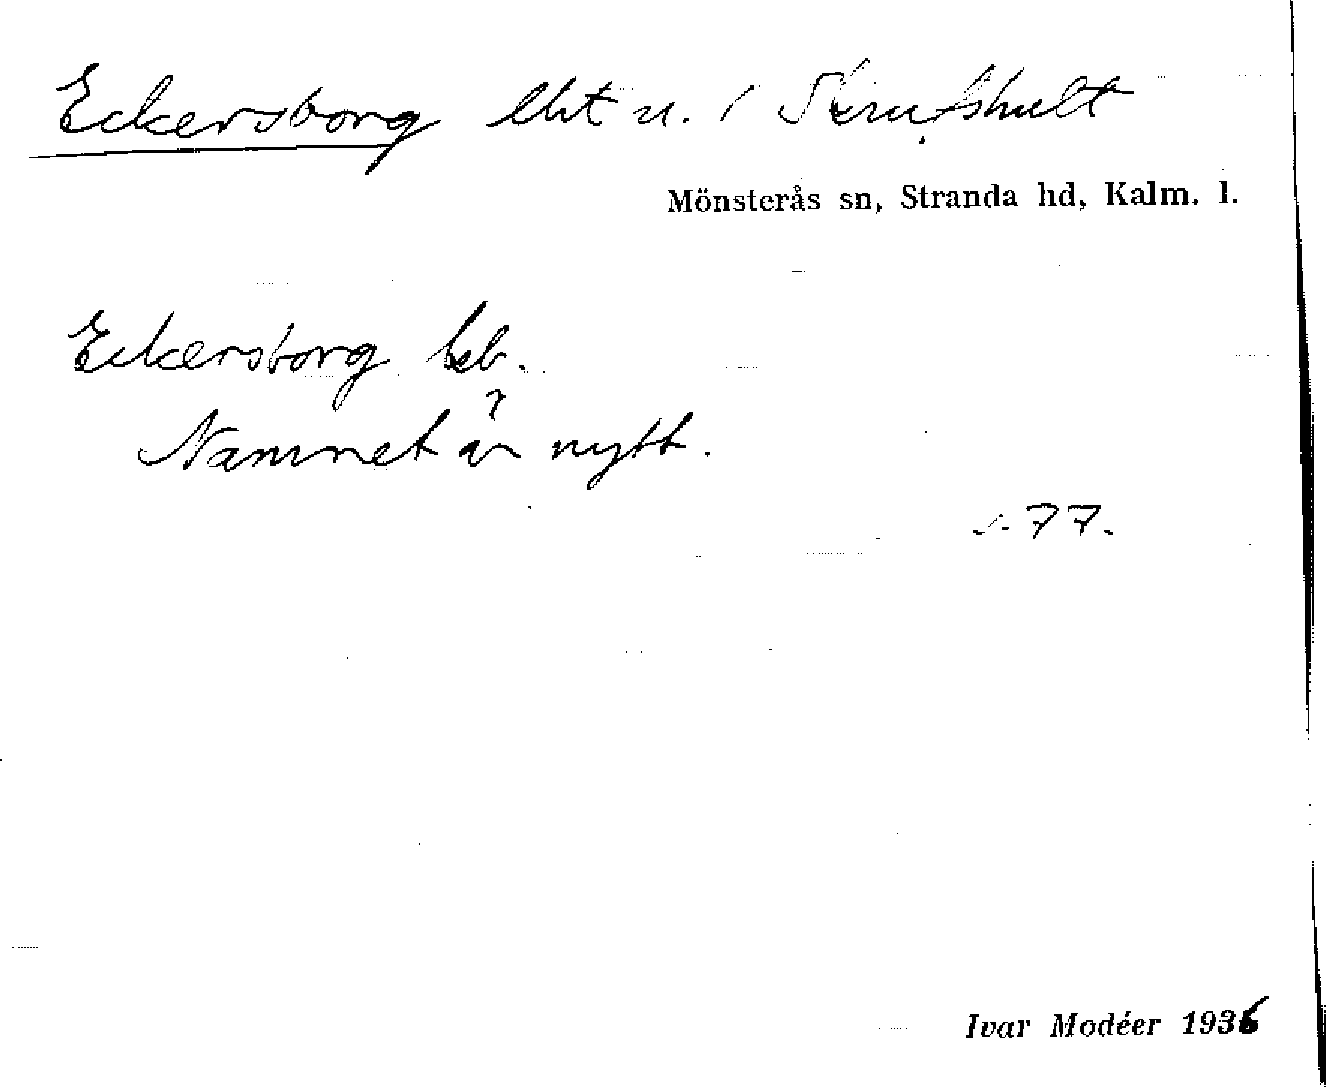 Eckersborg lht u. i Strutshult
Mönsterås sn, Stranda hd, Kalm. l.
Eckersborg bb.
Namnet är nytt.
s. 77.
Ivar Modéer 1936